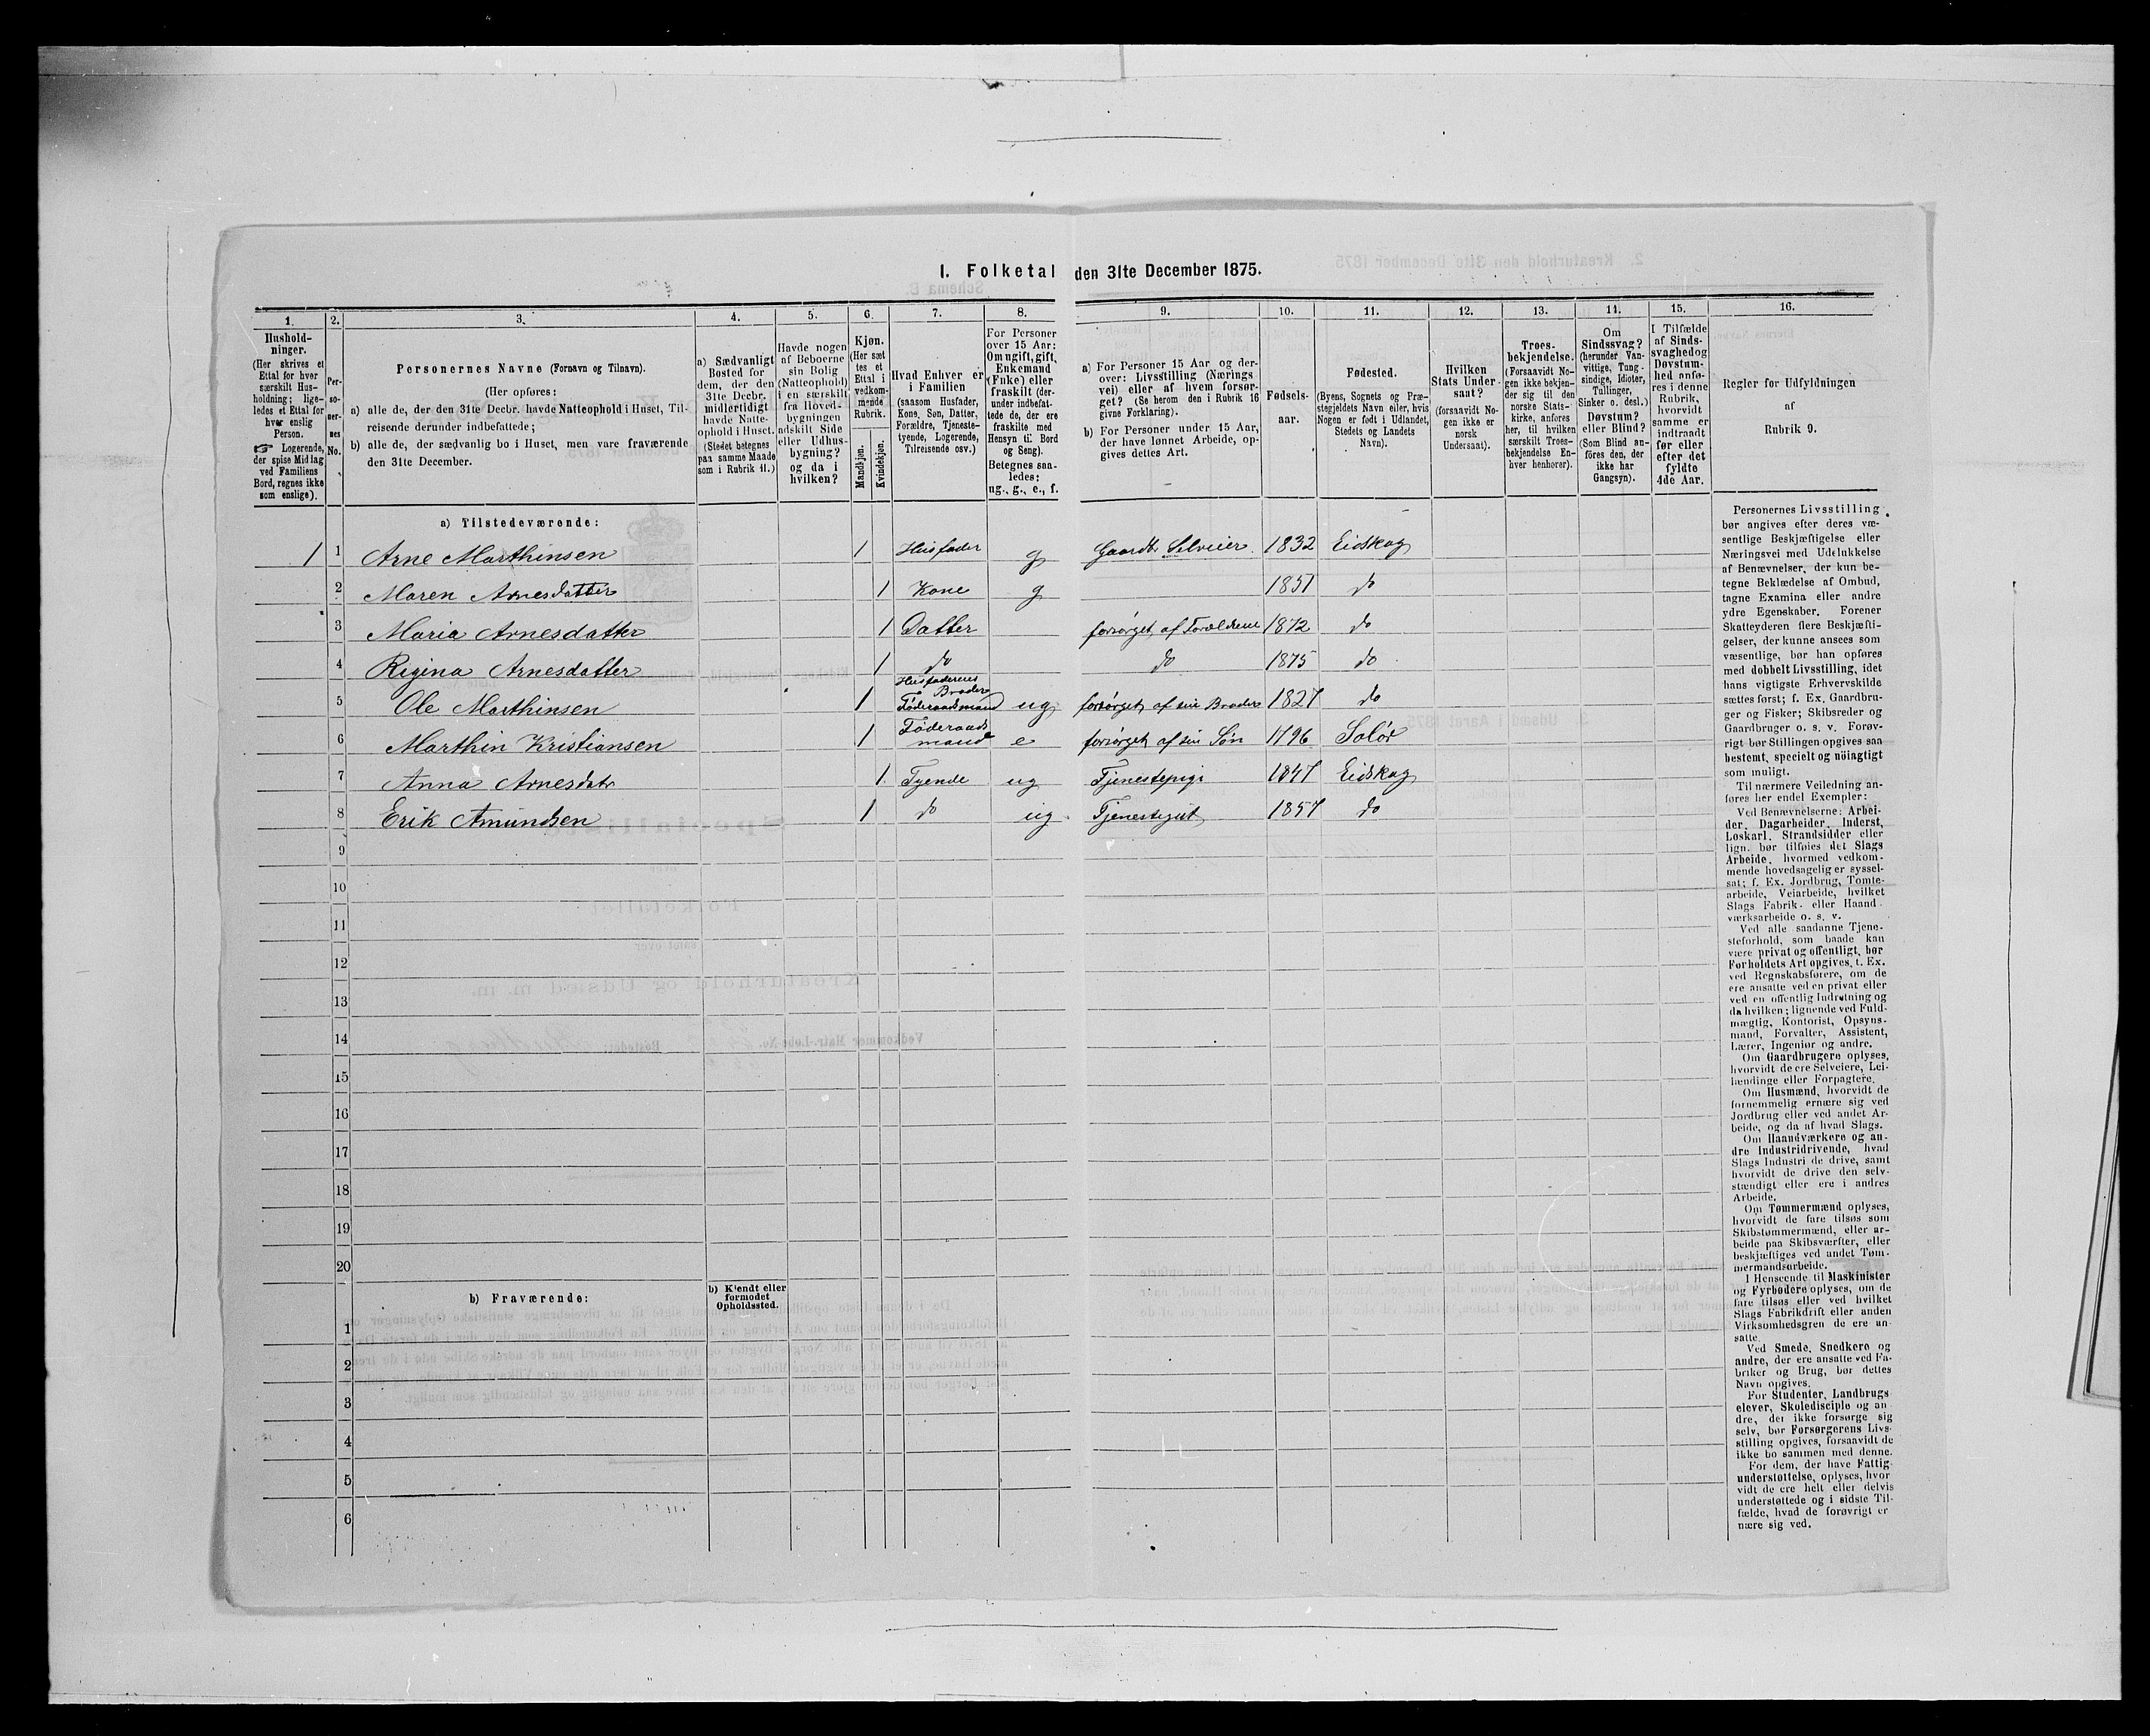 I. Folketal den 31te December 1875.
1. 2. 3. 4. 5. 6. 7. 8. 9. 10. 11. 12. 13. 14. 15. 16.
Hushold-
ninger.
(Her skrives et
Ettal for hver
særskilt Hus-
holdning; lige-
ledes et Ettal for
hver enslig
Person.
Logerende,
der spise Middag
ved Familiens
Bord, regnes ikke
som enslige).
Per-
so-
ner-
nes
No.
Personernes Navne (Fornavn og Tilnavn).
(Her opføres:
a) alle de, der den 31te Decbr. havde Natteophold i Huset, Til-
reisende derunder indbefattede;
b) alle de, der sædvanlig bo i Huset, men vare fraværende
den 31te December.
a) Sædvanligt
Bosted for
dem, der den
31te Decbr.
midlertidigt
havde Natte-
ophold i Huset.
(Stedet betegnes
paa samme Maade
som i Rubrik 11.)
Havde nogen
af Beboerne
sin Bolig
(Natteophold)
i en særskilt
fra Hoved-
bygningen
adskilt Side
eller Udhus-
bygning?
og da i
hvilken?
Kjøn.
(Her sæt
tes et
Ettal i
vedkom-
mende
Rubrik.
Mandkjøn.
Kvindekjøn.
Hvad Enhver er
i Familien
(saasom Husfader,
Kone, Søn, Datter,
Forældre, Tjeneste-
tyende, Logerende,
Tilreisende osv.)
For Personer
over 15 Aar:
Om ugift, gift,
Enkemand
(Enke) eller
fraskilt (der-
under indbefat-
tede de, der ere
fraskilte med
Hensyn til Bord
og Seng).
Betegnes saa-
ledes:
ug., g., e., f.
a) For Personer 15 Aar og der-
over: Livsstilling (Nærings
vei) eller af hvem forsør-
get? (Se herom den i Rubrik 16
givne Forklaring).
b) For Personer under 15 Aar,
der have lønnet Arbeide, op-
gives dettes Art.
Fødsels-
aar.
Fødested.
(Byens, Sognets og Præ-
stegjeldets Navn eller, hvis
Nogen er født i Udlandet,
Stedets og Landets
Navn).
Hvilken
Stats Under-
saat?
(forsaavidt No-
gen ikke er
norsk
Undersaat).
Troes-
bekjendelse.
(Forsaavidt No-
gen ikke bekjen-
der sig til den
norske Stats-
kirke, anføres
her, til hvilken
særskilt Troes-
bekjendelse En-
hver henhører).
Om
Sindssvag?
(herunder Van-
vittige, Tung-
sindige, Idioter,
Tullinger,
Sinker o. desl.)
Døvstum?
eller Blind?
(Som Blind an-
føres den, der
ikke har
Gangsyn).
I Tilfælde
af Sinds-
svaghed og
Døvstum-
hed anfø-
res i denne
Rubrik,
hvorvidt
samme er
indtraadt
før eller
efter det
fyldte
4de Aar.
Regler for Udfyldningen
af
Rubrik 9.
a) Tilstedeværende:
1 1 Arne Marthinsen 1 Husfader g Gaardbr. Selveier 1832 Eidskog
2 Maren Arnesdatter 1 Kone g 1851 do
3 Maria Arnesdatter 1 Datter forsørget af Forældrene 1872 do
4 Regina Arnesdatter 1 do do 1875 do
5 Ole Marthinsen 1 Husfaderens Broder Föderaadsmand ug forsørget af sin Broder 1827 do
6 Marthin Kristiansen 1 Föderaadsmand e forsørget af sin Søn 1796 Solør
7 Anna Arnesdatr 1 Tyende ug Tjenestepige 1847 Eidskog
8 Erik Amundsen 1 do ug Tjenestegut 1857 do
9
10
11
12
13
14
15
16
17
18
19
20
b) Fraværende:
b) Kjendt eller
formodet
Opholdssted.
1
2
3
4
5
6
Personernes Livsstilling
bør angives efter deres væ-
sentlige Beskjæftigelse eller
Næringsvei med Udelukkelse
af Benævnelser, der kun be-
tegne Beklædelse af Ombud,
tagne Examina eller andre
ydre Egenskaber. Forener
Skatteyderen flere Beskjæfti-
gelser, der kunne ansees som
væsentlige, bør han opføres
med dobbelt Livsstilling, idet
hans vigtigste Erhvervskilde
sættes først; f. Ex. Gaardbru-
ger og Fisker; Skibsreder og
Gaardbruger o. s. v. Forøv-
rigt bør Stillingen opgives saa
bestemt, specielt og nöiagtigt
som muligt.
Til nærmere Veiledning an-
føres her endel Exempler:
Ved Benævnelserne: Arbei-
der, Dagarbeider, Inderst,
Løskarl, Strandsidder eller
lign. bør tilføies det Slags
Arbeide, hvormed vedkom-
mende hovedsagelig er syssel-
sat; f. Ex. Jordbrug, Tomte-
arbeide, Veiarbeide, hvilket
Slags Fabrik- eller Haand-
værksarbeide o. s. v.
Ved alle saadanne Tjene-
steforhold, som baade kan
være privat og offentligt, bør
Forholdets Art opgives, f. Ex.
ved Regnskabsførere, om de
ere ansatte ved en privat eller
ved en offentlig Indretning og
da hvilken; lignende ved Fuld-
mægtig, Kontorist, Opsyns-
mand, Forvalter, Assistent,
Lærer, Ingeniør og andre.
Om Gaardbrugere oplyses,
hvorvidt de ere Selveiere, Lei-
lændinge eller Forpagtere.
Om Husmænd, hvorvidt de
fornemmelig ernære sig ved
Jordbrug eller ved andet Ar-
beide, og da af hvad Slags.
Om Haandværkere og an-
dre Industridrivende, hvad
Slags Industri de drive, samt
hvorvidt de drive den selv-
stændigt eller ere i andres
Arbeide.
Om Tømmermænd oplyses,
hvorvidt de fare tilsøs som
Skibstømmermænd, eller ar-
beide paa Skibsværfter, eller
beskjæftiges ved andet Tøm-
mermandsarbeide.
I Henseende til Maskinister
og Fyrbødere oplyses, om de
fare tilsøs eller ved hvilket
Slags Fabrikdrift eller anden
Virksomhedsgren de ere an-
satte.
Ved Smede, Snedkere og
andre, der ere ansatte ved Fa-
briker og Brug, bør dettes
Navn opgives.
For Studenter, Landbrugs
elever, Skoledisciple og an-
dre, der ikke forsørge sig
selv, bør Forsørgerens Livs-
stilling opgives, forsaavidt de
ikke bo sammen med denne.
For dem, der have Fattig-
understøttelse, oplyses, hvor
vidt de ere helt eller delvis
understøttede og i sidste Til-
fælde, hvad de forøvrigt er
nære sig ved.